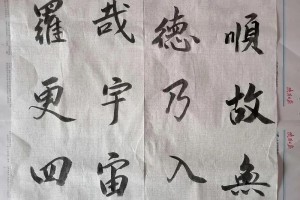 順故無
德乃入
哉宇宙
羅更四